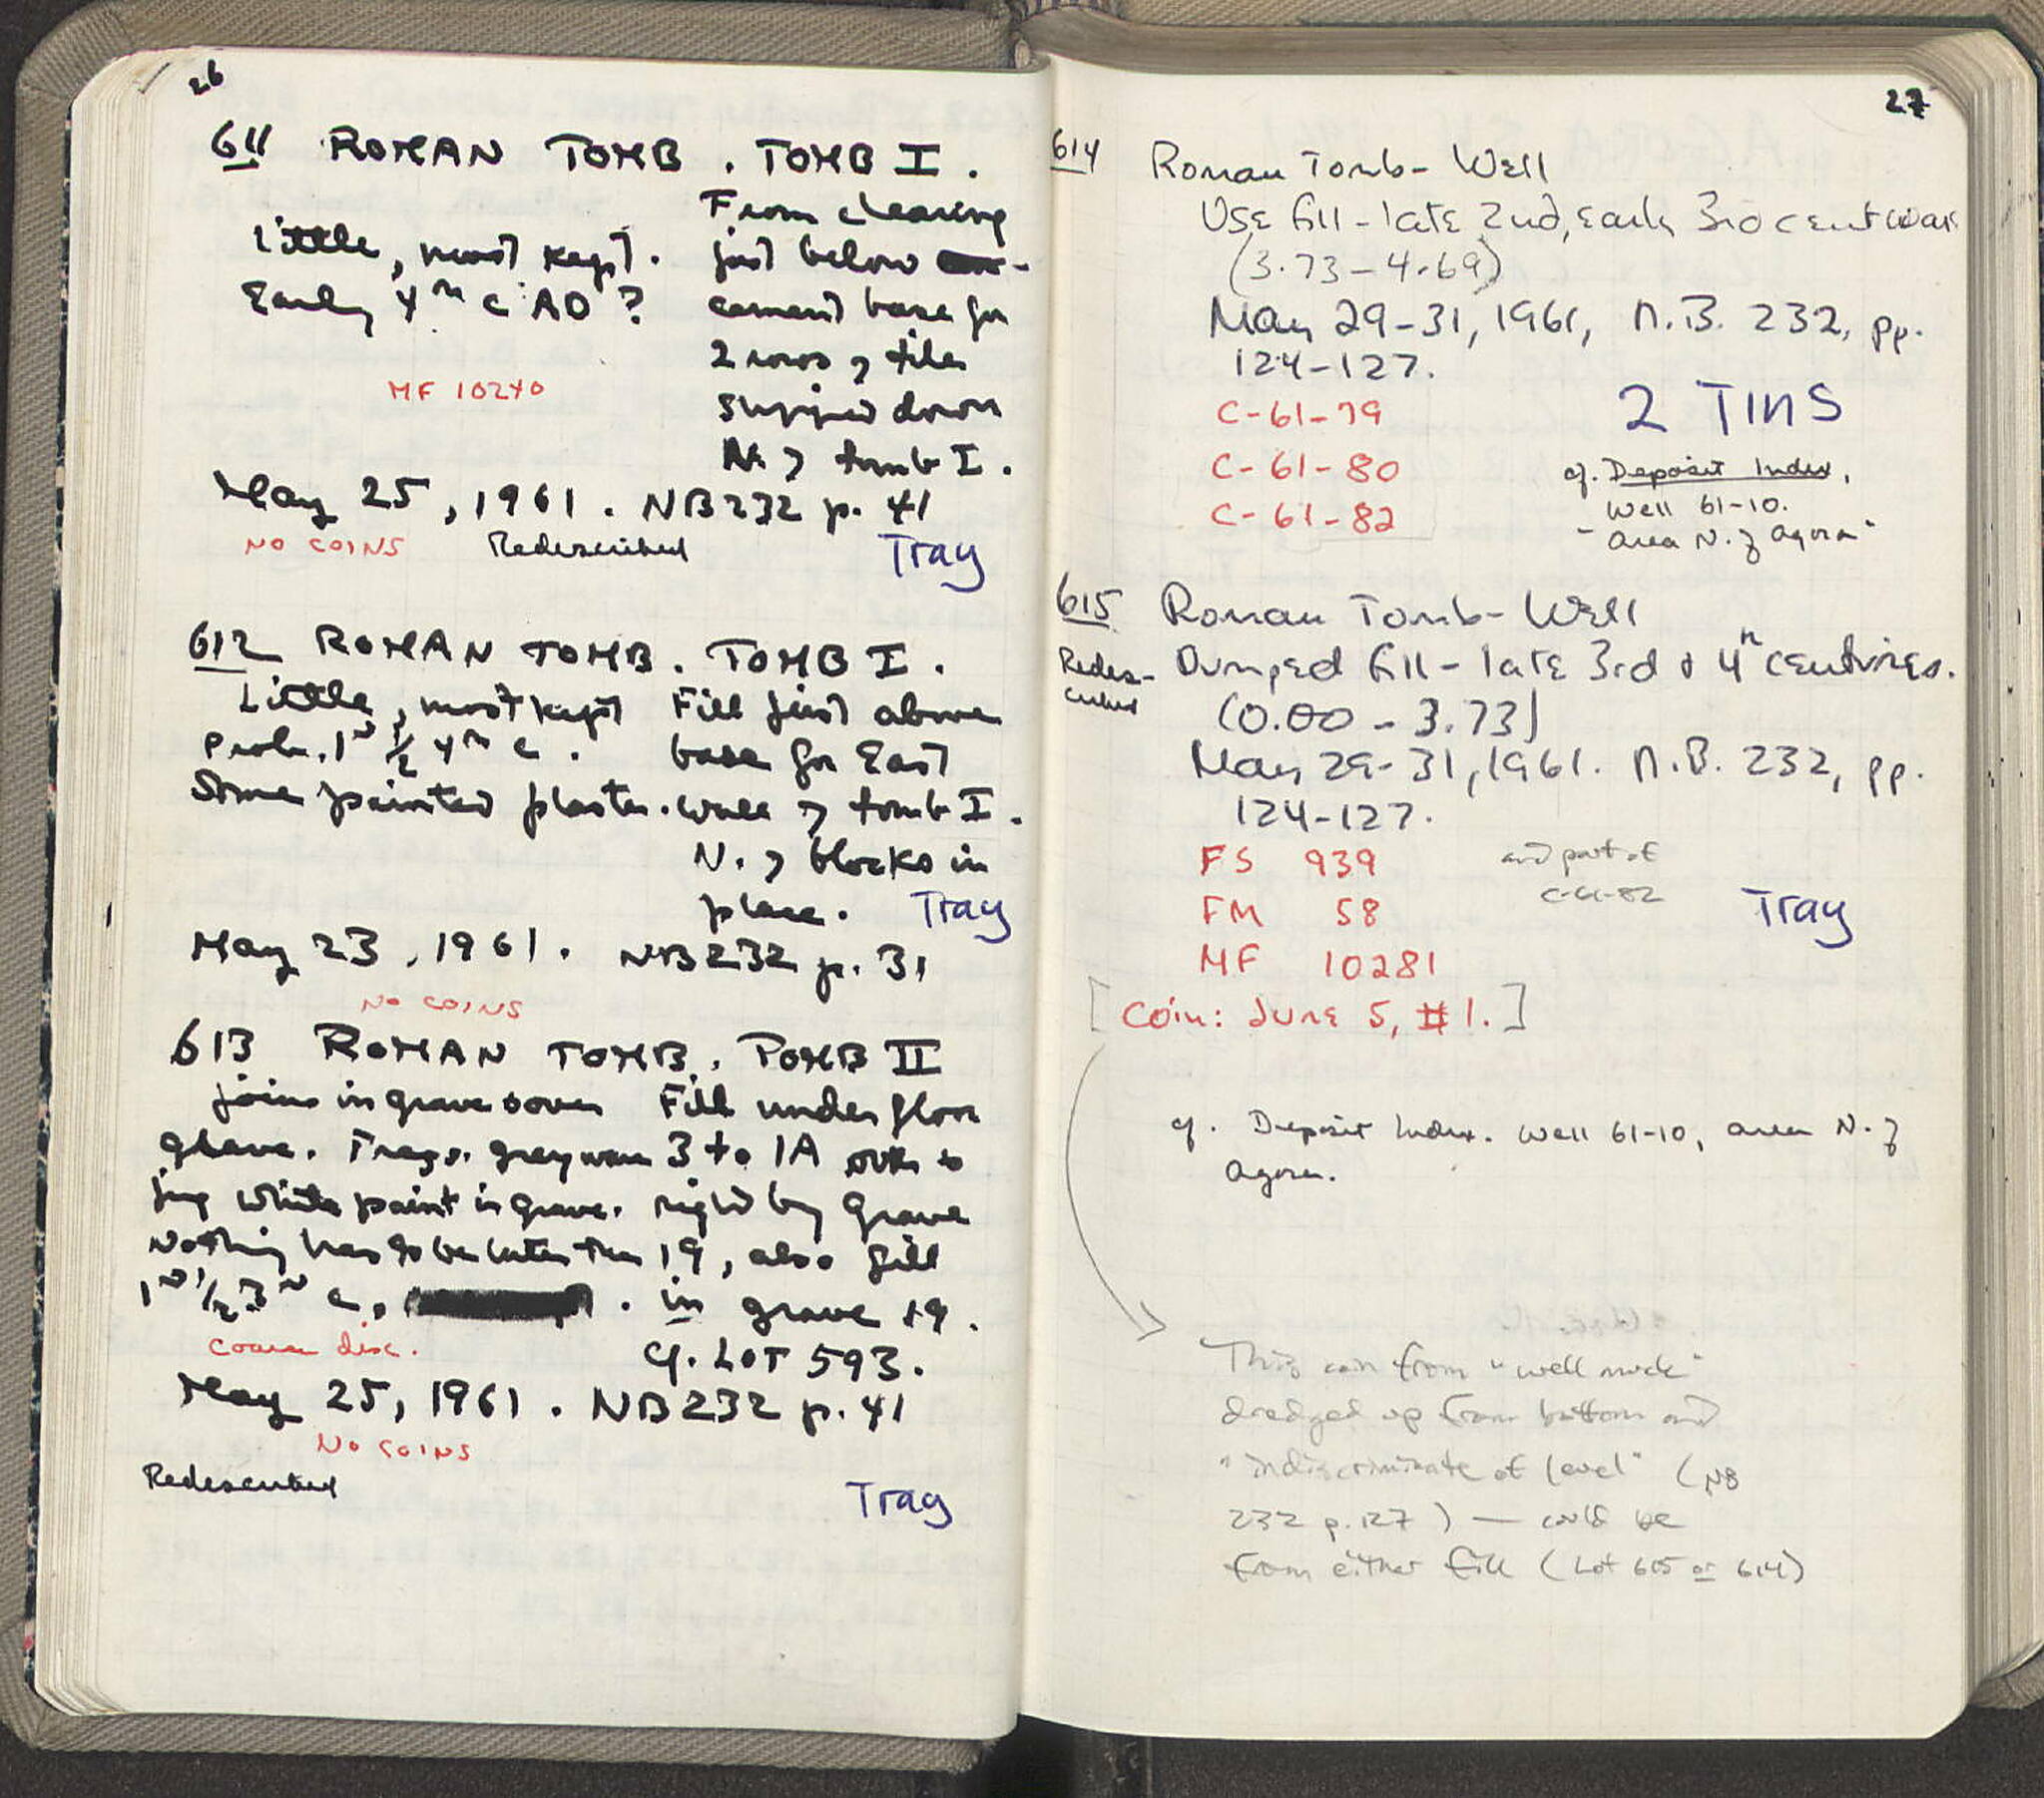 26
611 ROMAN TOMB. TOMB I.
From clearing
Little, most kept. just below
Early 4th c AD? cement base for
2 rows of tiles
MF 10240
stepped down
N. of tomb I.
May 25, 1961. NB232 p. 41
NO COINS Redescribed Tray
612 ROMAN TOMB. TOMB I.
Little, most kept Fill just above
Prob. 1st 1/2 4th c. base for East
Some painted plaster. wall of tomb I.
N. of blocks in
place. Tray
May 23, 1961. NB232 p. 31
NO COINS
613 ROMAN TOMB. TOMB II
joins in grave Fill under floor
Frags. grey ware 3 to 1A
jug white paint in grave. right by grave
Nothing has to be later than 19, also fill
1st 1/2 3rd c. in grave 19.
Coarse disc. cf. LOT 593.
May 25, 1961. NB232 p. 41
NO COINS
Redescribed Tray
27
614 Roman Tomb-Well
Use fill - late 2nd, early 3rd cent
(3.73-4.69)
May 29-31, 1961, N.B. 232, pp.
124-127.
C-61-79 2 TINS
C-61-80 cf. Deposit Index,
C-61-82 Well 61-10.
"Area N. of Agora"
615 Roman Tomb-Well
Redescribed Dumped fill - late 3rd & 4th centuries.
(0.00 - 3.73)
May 29-31, 1961. N.B. 232, pp.
124-127.
FS 939 and part of
C-61-82
FM 58 Tray
MF 10281
[Coin: June 5, #1.]
cf. Deposit Index. Well 61-10, area N. of
Agora.
This coin from "well muck"
dredged up from bottom and
"indiscriminate of level" (NB
232 p. 127) — could be
from either fill (Lot 615 or 614)